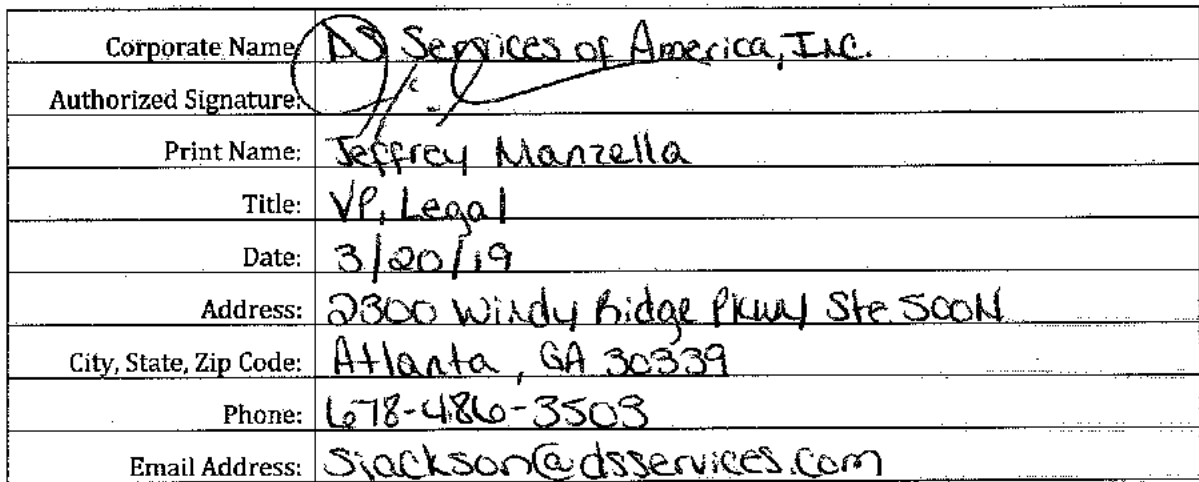 Corporate Name: DS Services of America, Inc.
Authorized Signature:
Print Name: Jeffrey Manzella
Title: VP, Legal
Date: 3/20/19
Address: 2300 Windy Ridge Pkwy Ste 500N
City, State, Zip Code: Atlanta, GA 30339
Phone: 678-486-3503
Email Address: Sjackson@dsservices.com